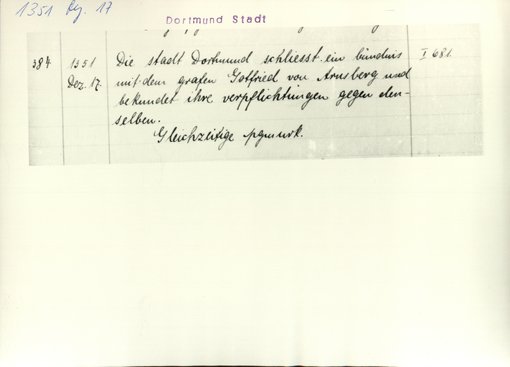 1351 Dez. 17
Dortmund Stadt
384 1351 Die stadt Dortmund schliesst ein bündnis I 681.
Dez. 17. mit dem grafen Gotfried von Arnsberg und
bekundet ihre verpflichtungen gegen den-
selben.
Gleichzeitige pgmurk.